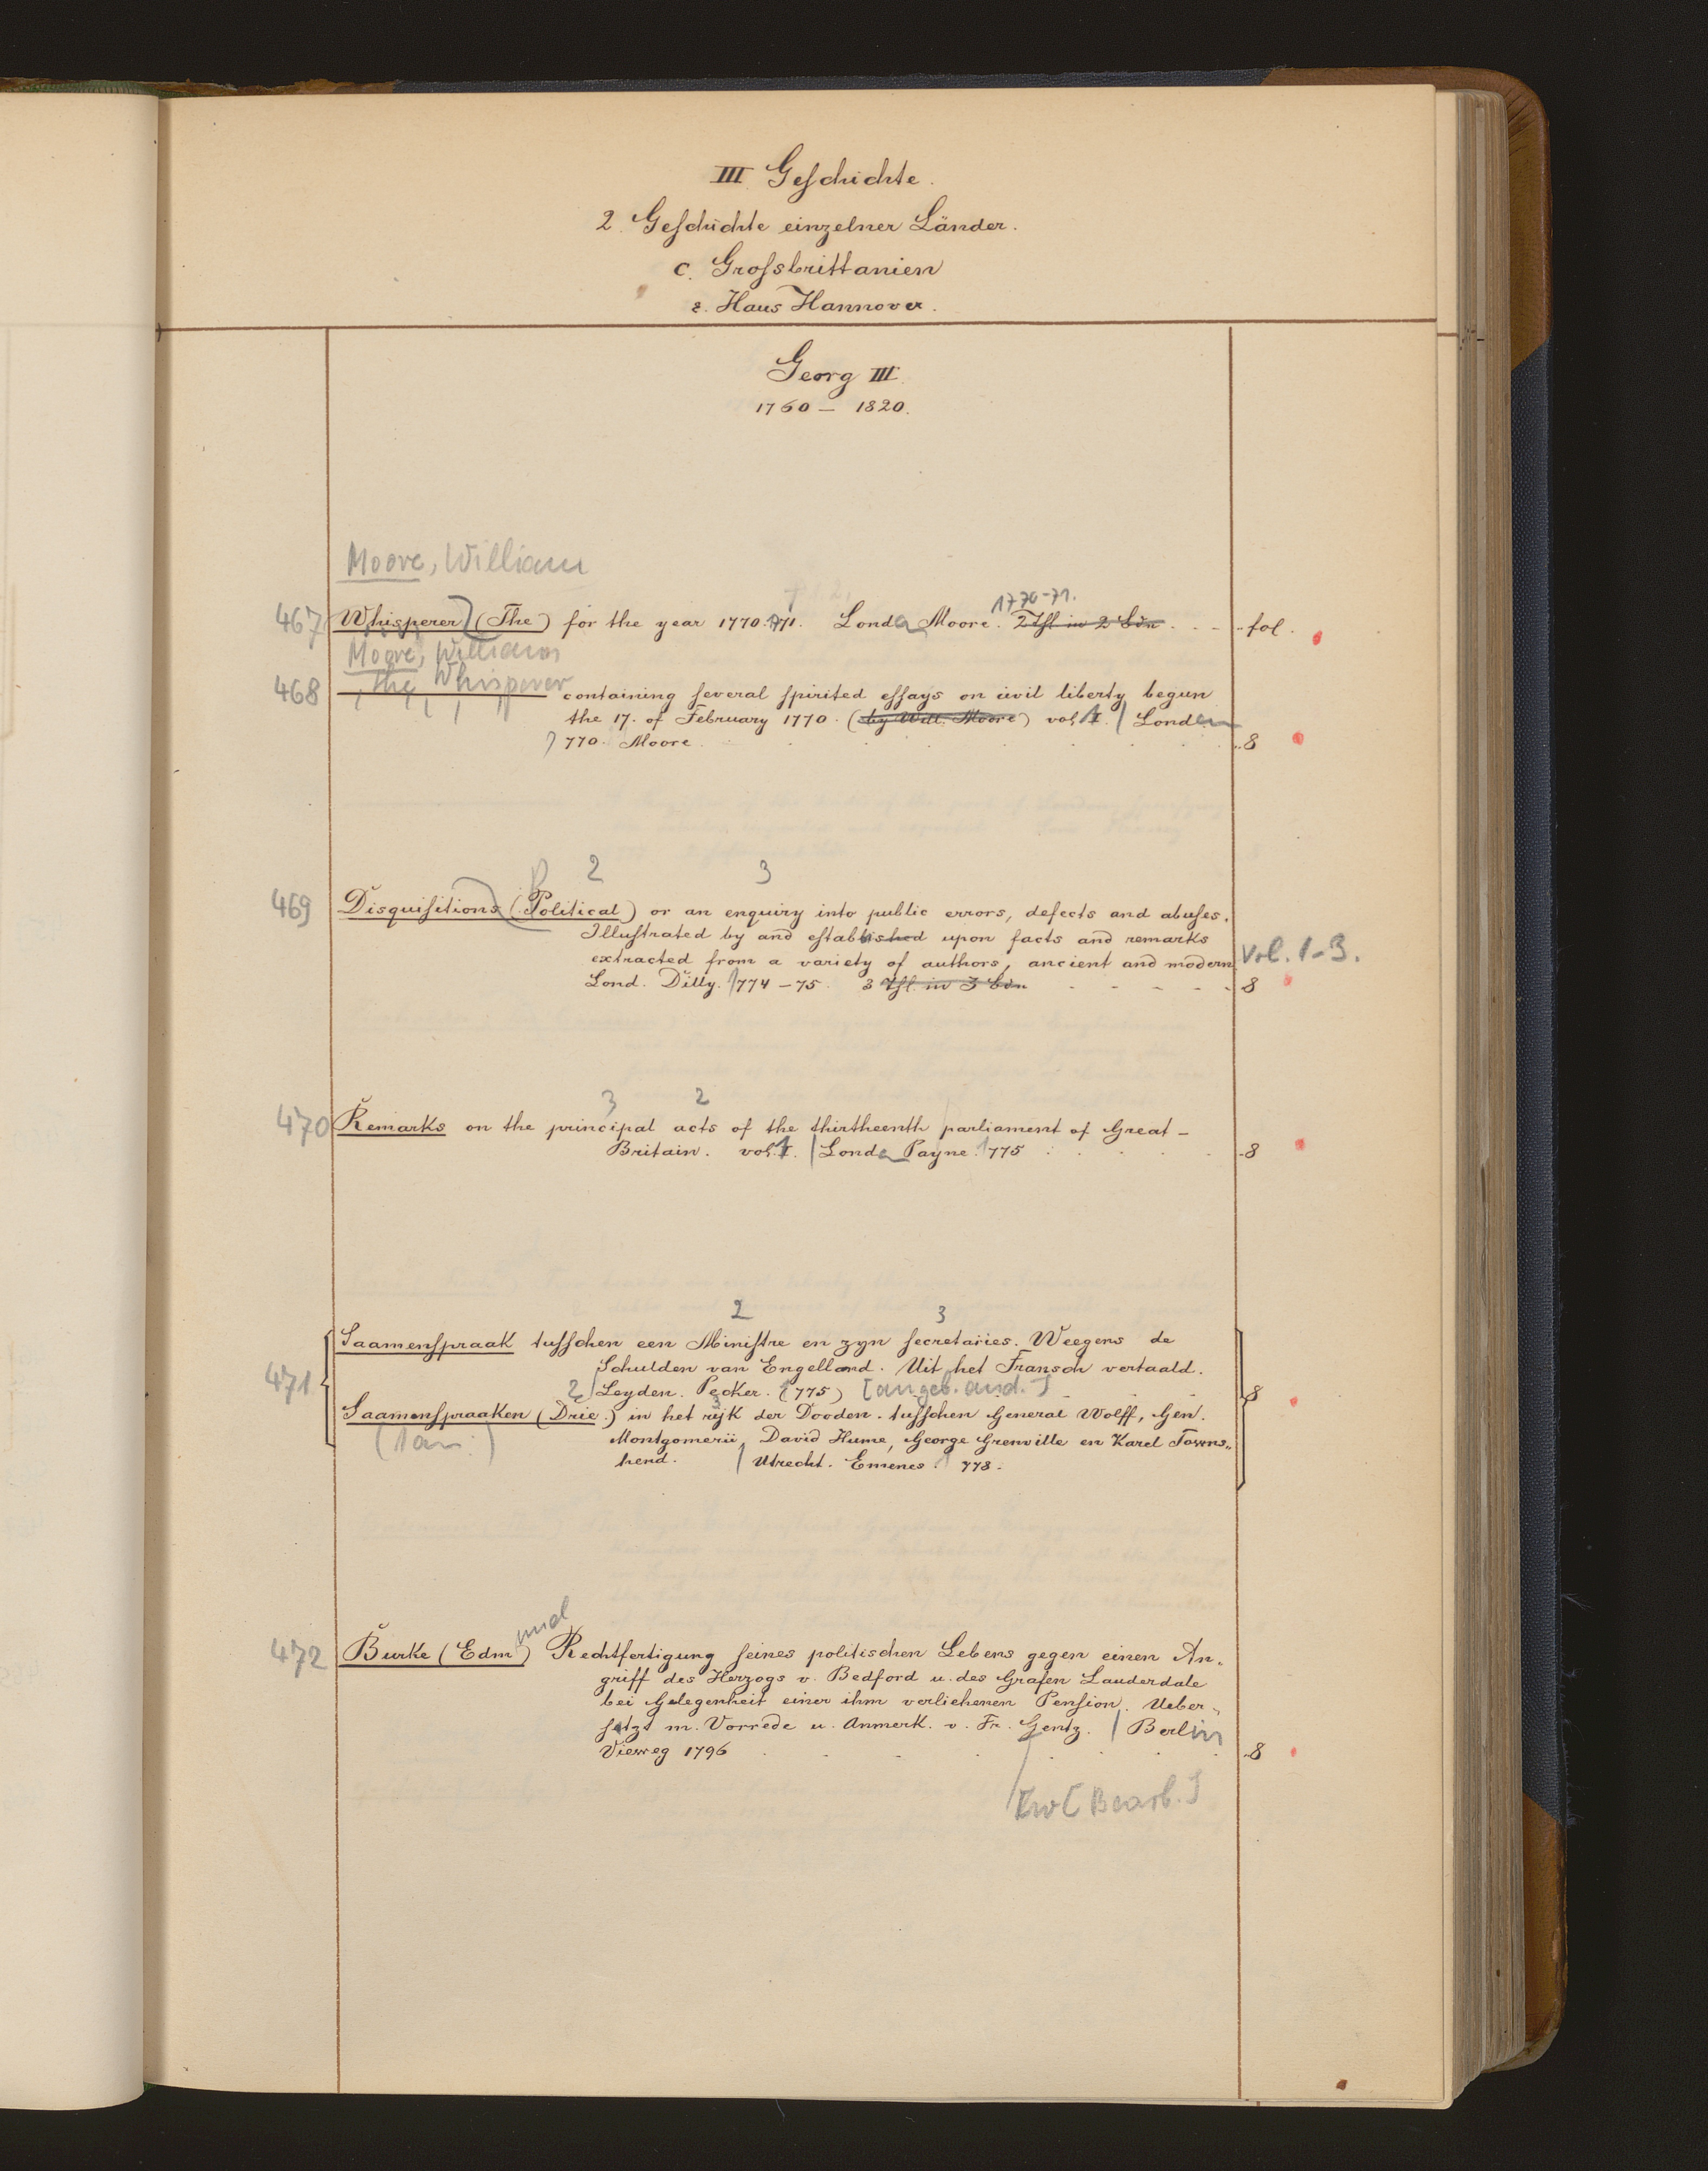 III Geschichte.
2. Geschichte einzelner Länder.
c. Grossbrittanien
ε. Haus Hannover.
Georg III.
1760 – 1820.
Moore, William
1770-71.
467 Whisperer (The) for the year 1770.71. London Moore. 2 Thl in 2 Bdn fol.
Moore, William
, the Whisperer
468 containing several spirited essays on civil liberty begun
the 17. of February 1770. (by Will. Moore) vol 1. / London
1770. Moore. 8
2 3
469 Disquisitions (Political) or an enquiry into public errors, defects and abuses.
Illustrated by and established upon facts and remarks
extracted from a variety of authors, ancient and modern Vol. 1-3.
Lond. Dilly. 1774–75. 3 Thl. in 3 Bdn 8
3 2
470 Remarks on the principal acts of the thirtheenth parliament of Great-
Britain. vol. 1. / London Payne. 1775 8
2 3
Saamenspraak tusschen een Ministre en zyn secretaries. Weegens de
Schulden van Engelland. Uit het Fransch vertaald.
471 Leyden. Pecker. (1775) [angeb. and.] 8
Saamenspraaken (Drie.) in het rijk der Dooden. tusschen General Wolff, Gen.
Montgomerii, David Hume, George Grenville en Karel Towns„
hend. / Utrecht. Emenes. 1778.
und
472 Burke (Edm) Rechtfertigung seines politischen Lebens gegen einen An„
griff des Herzogs v. Bedford u. des Grafen Lauderdale
bei Gelegenheit einer ihm verliehenen Pension. Ueber„
setzt m. Vorrede u. Anmerk. v. Fr. Gentz. / Berlin
Vieweg 1796 8
[Bearb.]